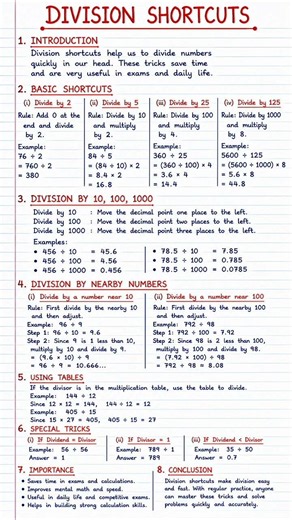 DIVISION SHORTCUTS
1. INTRODUCTION
Division shortcuts help us to divide numbers
quickly in our head. These tricks save time
and are very useful in exams and daily life.
2. BASIC SHORTCUTS
(i) Divide by 2
Rule: Add 0 at the
end and divide
by 2.
Example:
76 ÷ 2
= 760 ÷ 2
= 380
(ii) Divide by 5
Rule: Divide by 10
and multiply
by 2.
Example:
84 ÷ 5
= (84 ÷ 10) × 2
= 8.4 × 2
= 16.8
(iii) Divide by 25
Rule: Divide by 100
and multiply
by 4.
Example:
360 ÷ 25
= (360 ÷ 100) × 4
= 3.6 × 4
= 14.4
(iv) Divide by 125
Rule: Divide by 1000
and multiply
by 8.
Example:
5600 ÷ 125
= (5600 ÷ 1000) × 8
= 5.6 × 8
= 44.8
3. DIVISION BY 10, 100, 1000
Divide by 10 : Move the decimal point one place to the left.
Divide by 100 : Move the decimal point two places to the left.
Divide by 1000 : Move the decimal point three places to the left.
Examples:
• 456 ÷ 10 = 45.6
• 456 ÷ 100 = 4.56
• 456 ÷ 1000 = 0.456
• 78.5 ÷ 10 = 7.85
• 78.5 ÷ 100 = 0.785
• 78.5 ÷ 1000 = 0.0785
4. DIVISION BY NEARBY NUMBERS
(i) Divide by a number near 10
Rule: First divide by the nearby 10
and then adjust.
Example: 96 ÷ 9
Step 1: 96 ÷ 10 = 9.6
Step 2: Since 9 is 1 less than 10,
multiply by 10 and divide by 9.
= (9.6 × 10) ÷ 9
= 96 ÷ 9 = 10.666...
(ii) Divide by a number near 100
Rule: First divide by the nearby 100
and then adjust.
Example: 792 ÷ 98
Step 1: 792 ÷ 100 = 7.92
Step 2: Since 98 is 2 less than 100,
multiply by 100 and divide by 98.
= (7.92 × 100) ÷ 98
= 792 ÷ 98 = 8.08
5. USING TABLES
If the divisor is in the multiplication table, use the table to divide.
Example: 144 ÷ 12
Since 12 × 12 = 144, 144 ÷ 12 = 12
Example: 405 ÷ 15
Since 15 × 27 = 405, 405 ÷ 15 = 27
6. SPECIAL TRICKS
(i) If Dividend = Divisor
Example: 56 ÷ 56
Answer = 1
(ii) If Divisor = 1
Example: 789 ÷ 1
Answer = 789
(iii) If Dividend < Divisor
Example: 35 ÷ 50
Answer = 0.7
7. IMPORTANCE
• Saves time in exams and calculations.
• Improves mental math and speed.
• Useful in daily life and competitive exams.
• Helps in building strong calculation skills.
8. CONCLUSION
Division shortcuts make division easy
and fast. With regular practice, anyone
can master these tricks and solve
problems quickly and accurately.